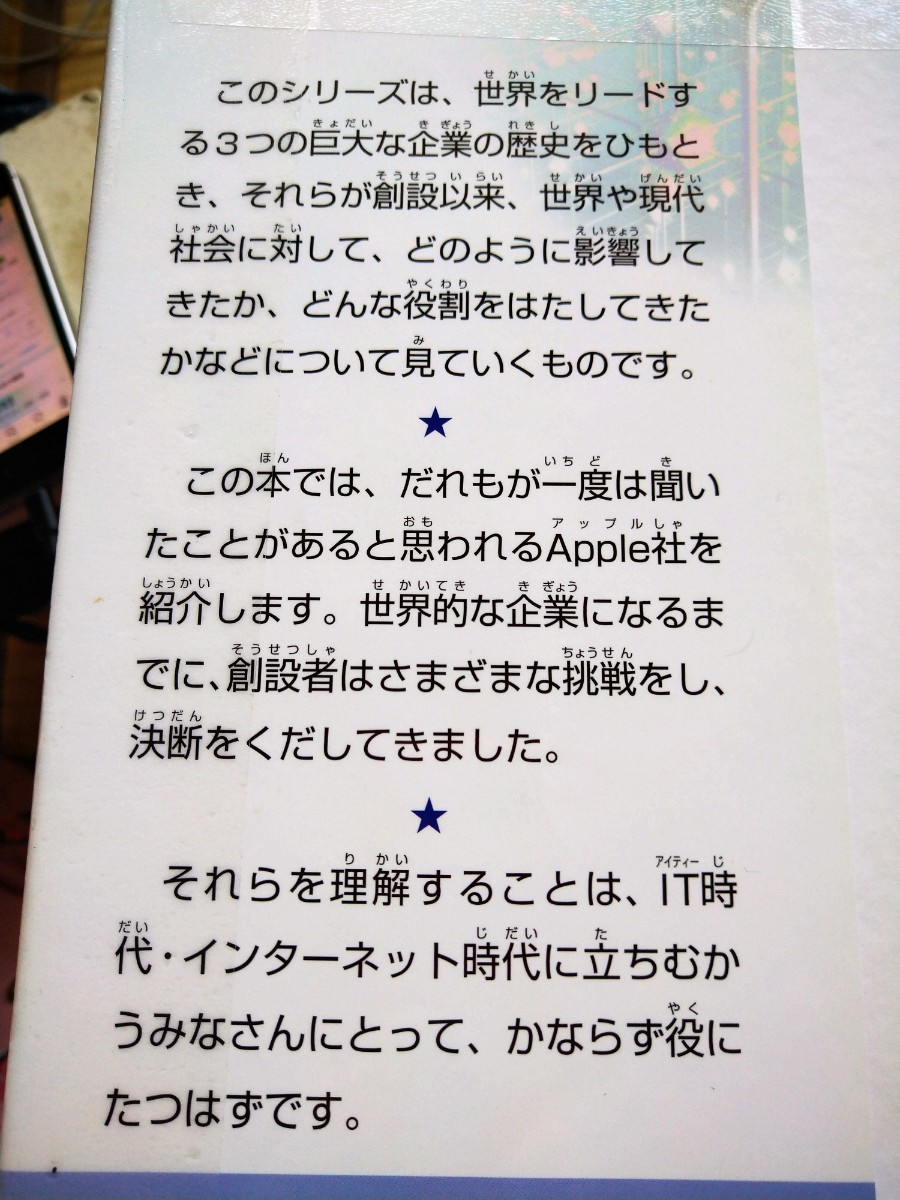 このシリーズは、世界をリードす
る3つの巨大な企業の歴史をひもと
き、それらが創設以来、世界や現代
社会に対して、どのように影響して
きたか、どんな役割をはたしてきた
かなどについて見ていくものです。
★
この本では、だれもが一度は聞い
たことがあると思われるApple社を
紹介します。世界的な企業になるま
でに、創設者はさまざまな挑戦をし、
決断をくだしてきました。
★
それらを理解することは、IT時
代・インターネット時代に立ちむか
うみなさんにとって、かならず役に
たつはずです。